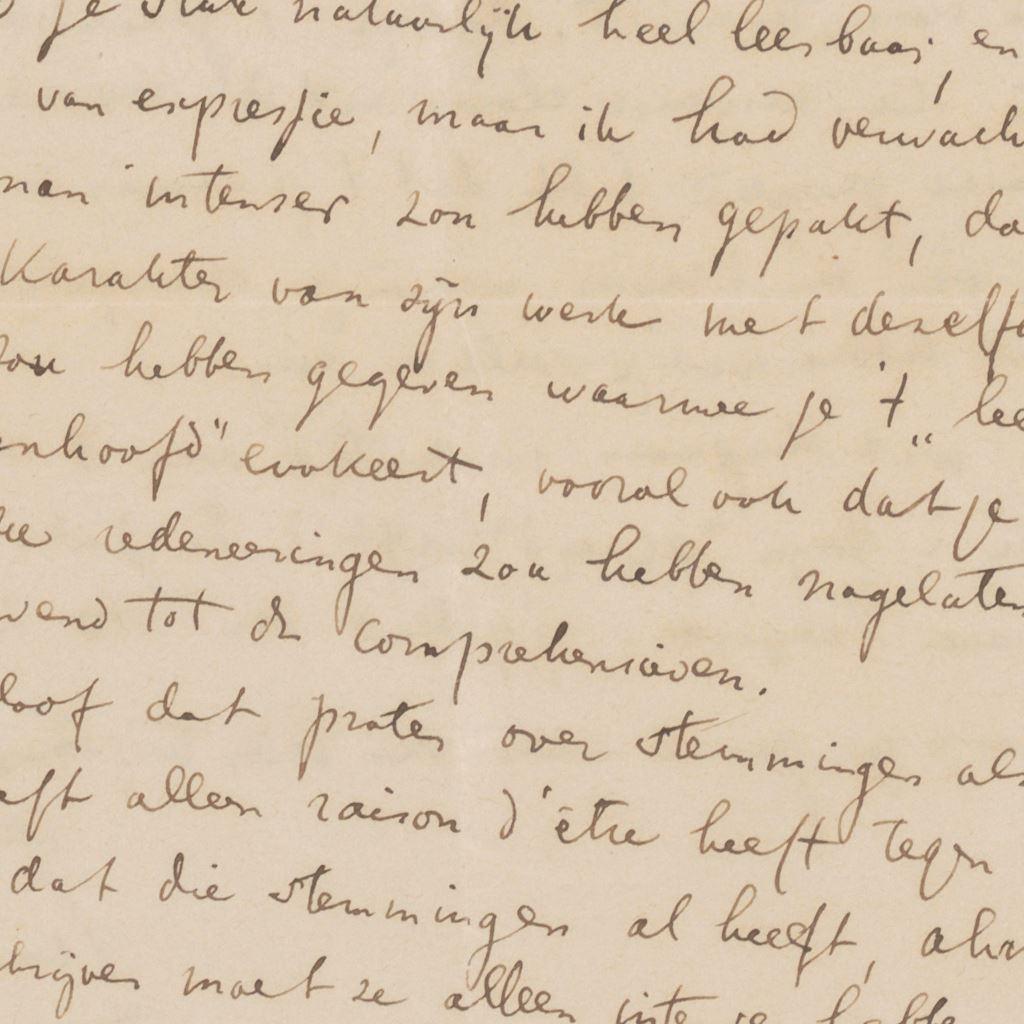 je stuk natuurlijk heel leesbaar, en
van expressie, maar ik had verwach
man intenser zou hebben gepakt, da
Karakter van zijn werk met dezelfd
zou hebben gegeven waarmee je 't „lee
enhoofd" evokeert, vooral ook dat je
redeneeringen zou hebben nagelaten
vend tot de comprehensieven.
loof dat praten over stemmingen als
eft alleen raison d'être heeft tegen
dat die stemmingen al heeft,
hrijven moet ze alleen